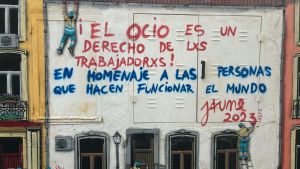 ¡EL OCIO ES UN
DERECHO DE LXS
TRABAJADORXS!
EN HOMENAJE A LAS PERSONAS
QUE HACEN FUNCIONAR EL MUNDO
JAUNE
2023